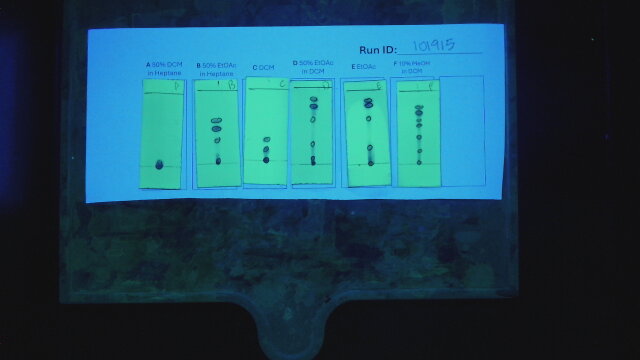 Run ID: 101915
A 50% DCM in Heptane
B 50% EtOAc in Heptane
C DCM
D 50% EtOAc in DCM
E EtOAc
F 10% MeOH in DCM
B
C
E
F